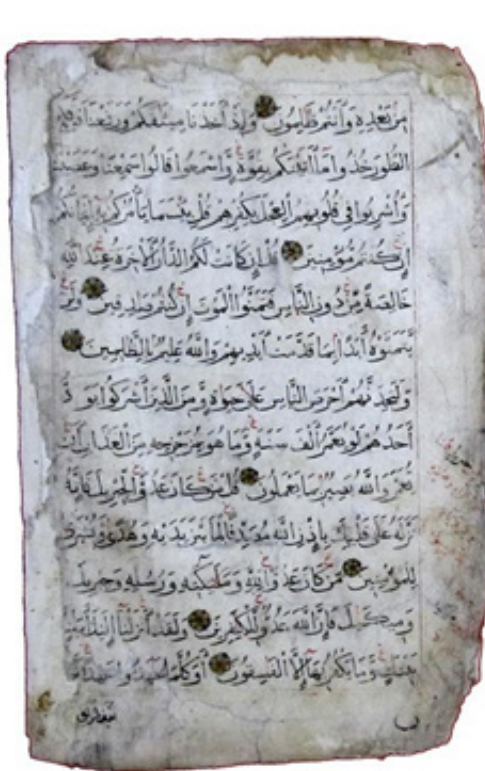 مِنْ بَعْدِهِ وَأَنْتُمْ ظٰلِمُونَ وَإِذْ أَخَذْنَا مِيثٰقَكُمْ وَرَفَعْنَا فَوْقَكُمُ
الطُّورَ خُذُوا مَا آتَيْنٰكُمْ بِقُوَّةٍ وَاسْمَعُوا قَالُوا سَمِعْنَا وَعَصَيْنَا
وَأُشْرِبُوا فِي قُلُوبِهِمُ الْعِجْلَ بِكُفْرِهِمْ قُلْ بِئْسَمَا يَأْمُرُكُمْ بِهِ إِيمَانُكُمْ
إِنْ كُنْتُمْ مُؤْمِنِينَ قُلْ إِنْ كَانَتْ لَكُمُ الدَّارُ الْآخِرَةُ عِنْدَ اللّٰهِ
خَالِصَةً مِنْ دُونِ النَّاسِ فَتَمَنَّوُا الْمَوْتَ إِنْ كُنْتُمْ صٰدِقِينَ وَلَنْ
يَتَمَنَّوْهُ أَبَدًا بِمَا قَدَّمَتْ أَيْدِيهِمْ وَاللّٰهُ عَلِيمٌ بِالظَّالِمِينَ
وَلَتَجِدَنَّهُمْ أَحْرَصَ النَّاسِ عَلَىٰ حَيٰوةٍ وَمِنَ الَّذِينَ أَشْرَكُوا يَوَدُّ
أَحَدُهُمْ لَوْ يُعَمَّرُ أَلْفَ سَنَةٍ وَمَا هُوَ بِمُزَحْزِحِهِ مِنَ الْعَذَابِ أَنْ
يُعَمَّرَ وَاللّٰهُ بَصِيرٌ بِمَا يَعْمَلُونَ قُلْ مَنْ كَانَ عَدُوًّا لِجِبْرِيلَ فَإِنَّهُ
نَزَّلَهُ عَلَىٰ قَلْبِكَ بِإِذْنِ اللّٰهِ مُصَدِّقًا لِمَا بَيْنَ يَدَيْهِ وَهُدًى وَبُشْرَىٰ
لِلْمُؤْمِنِينَ مَنْ كَانَ عَدُوًّا لِلّٰهِ وَمَلٰئِكَتِهِ وَرُسُلِهِ وَجِبْرِيلَ
وَمِيكٰلَ فَإِنَّ اللّٰهَ عَدُوٌّ لِلْكٰفِرِينَ وَلَقَدْ أَنْزَلْنَا إِلَيْكَ آيٰتٍ
بَيِّنٰتٍ وَمَا يَكْفُرُ بِهَا إِلَّا الْفٰسِقُونَ أَوَكُلَّمَا عٰهَدُوا عَهْدًا